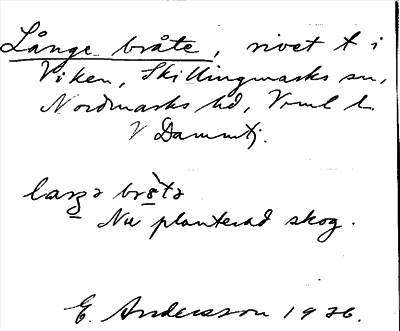 Långe bråte, rivet t i
Viken, Skillingmarks sn,
Nordmarks hd, Vrml l.
V Dammtj.
bråtə
Nu planterad skog.
E. Andersson 1926.